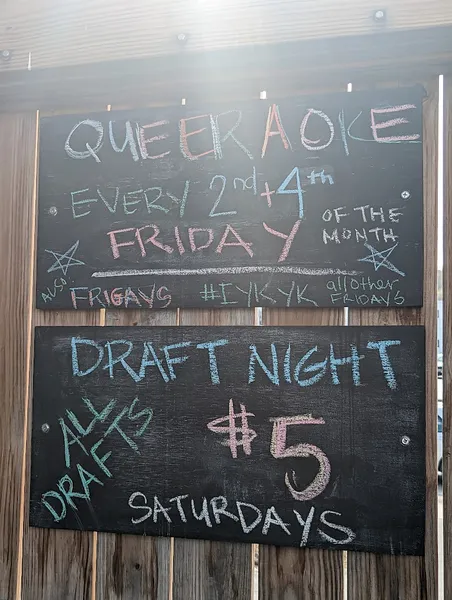 QUEERAOKE
EVERY 2nd + 4th
FRIDAY
OF THE
MONTH
ALSO FRIGAYS #IYKYK all other
FRIDAYS
DRAFT NIGHT
ALL
DRAFTS
$5
SATURDAYS